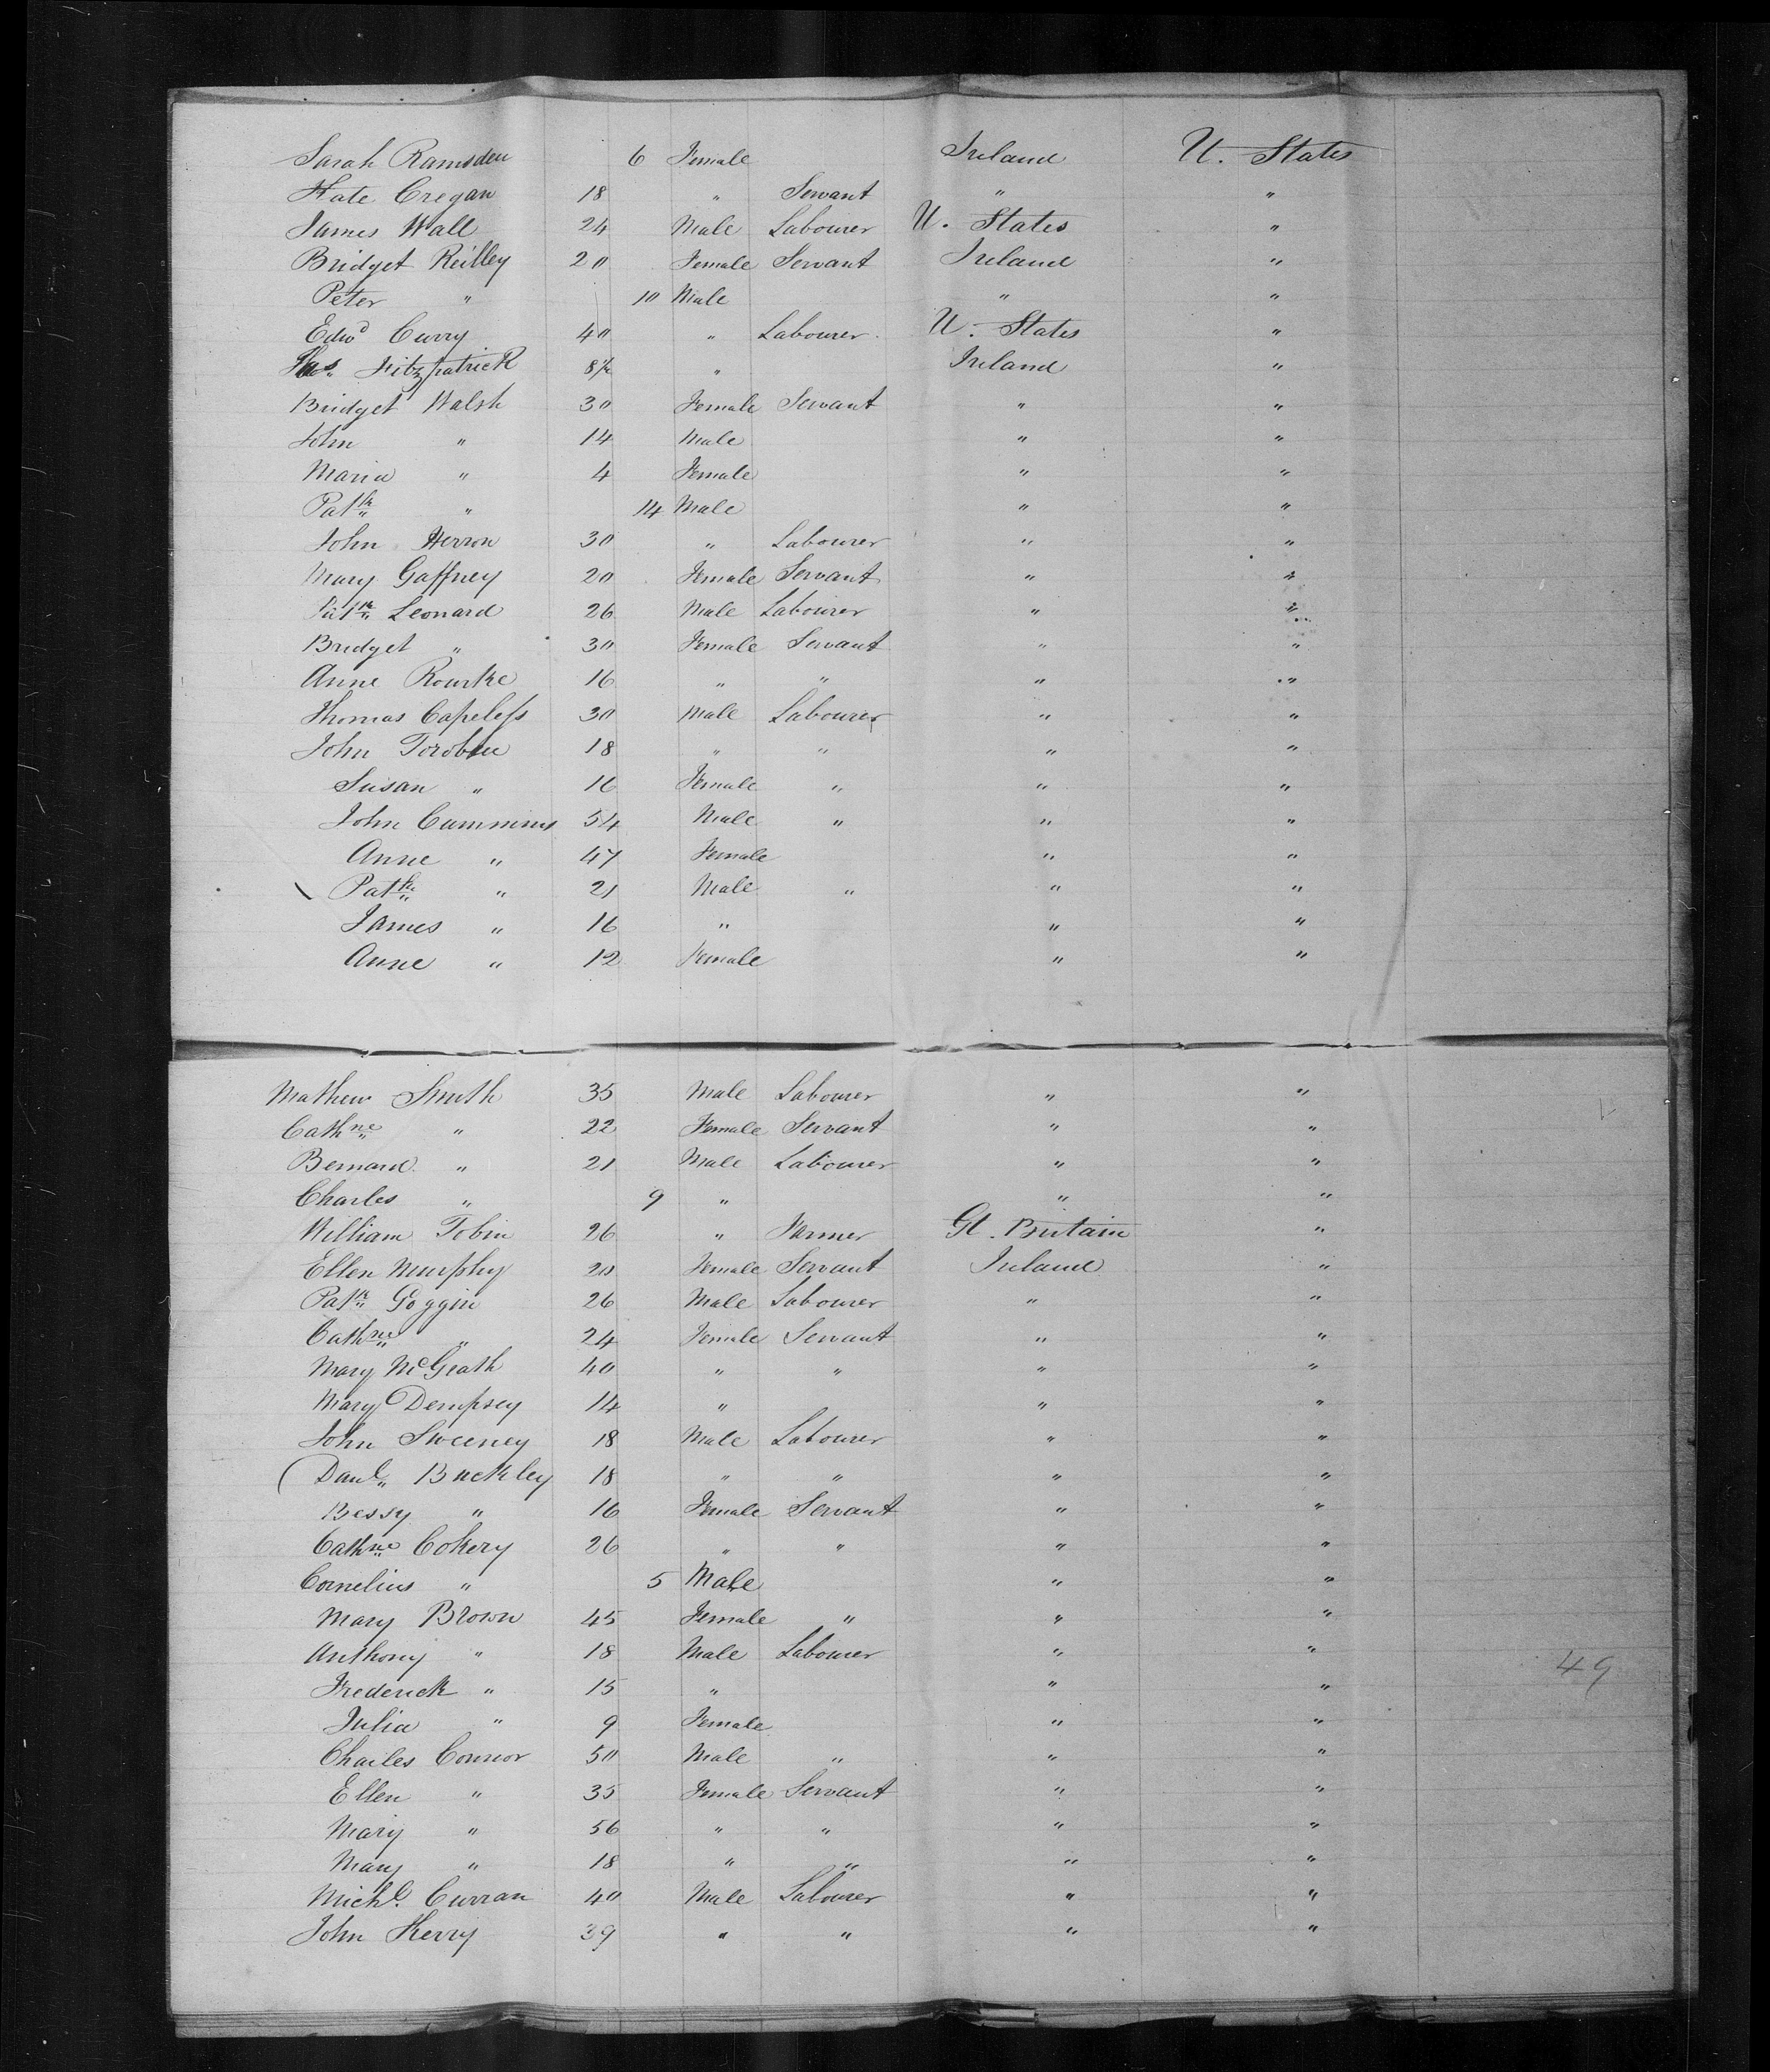 Sarah Ramsden 6 Female Ireland U. States
Kate Cregan 18 " Servant " "
James Wall 24 Male Labourer U. States "
Bridget Reilley 20 Female Servant Ireland "
Peter " 10 Male " "
Edwd Curry 40 " Labourer U. States "
Fitzpatrick 8½ " Ireland "
Bridget Walsh 30 Female Servant " "
John " 14 Male " "
Maria " 4 Female " "
Patk " 14 Male " "
John Herron 30 " Labourer " "
Mary Gaffney 20 Female Servant " "
Patk Leonard 26 Male Labourer " "
Bridget " 30 Female Servant " "
Anne Rourke 16 " " " "
Thomas Capeless 30 Male Labourer " "
John 18 " " " "
Susan " 16 Female " " "
John Cummins 54 Male " " "
Anne " 47 Female " "
Patk " 21 Male " " "
James " 16 " " "
Anne " 12 Female " "
Mathew Smith 35 Male Labourer " "
Cathne " 22 Female Servant " "
Bernard " 21 Male Labourer " "
Charles " 9 " " "
William Tobin 26 " Farmer Gt. Britain "
Ellen Murphy 20 Female Servant Ireland "
Patk Goggin 26 Male Labourer " "
Cathne " 24 Female Servant " "
Mary McGrath 40 " " " "
Mary Dempsey 14 " " "
John Sweeney 18 Male Labourer " "
Danl Buckley 18 " " " "
Bessy " 16 Female Servant " "
Cathne Cokery 26 " " " "
Cornelius " 5 Male " "
Mary Brown 45 Female " " "
Anthony " 18 Male Labourer " "
Frederick " 15 " " "
49
Julia " 9 Female " "
Charles Connor 50 Male " " "
Ellen " 35 Female Servant " "
Mary " 56 " " " "
Mary " 18 " " " "
Michl. Curran 40 Male Labourer " "
John Kerry 39 " " " "